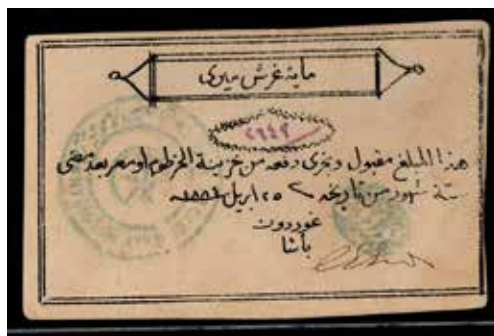 ماية غرش ميرى
٢٦٤٢
هذا المبلغ مقبول وتجرى دفعه من خزينة الخرطوم او مصر بعد مضى
ستة شهور من تاريخه ٢٥ ابريل ١٨٨٤
غوردون
باشا